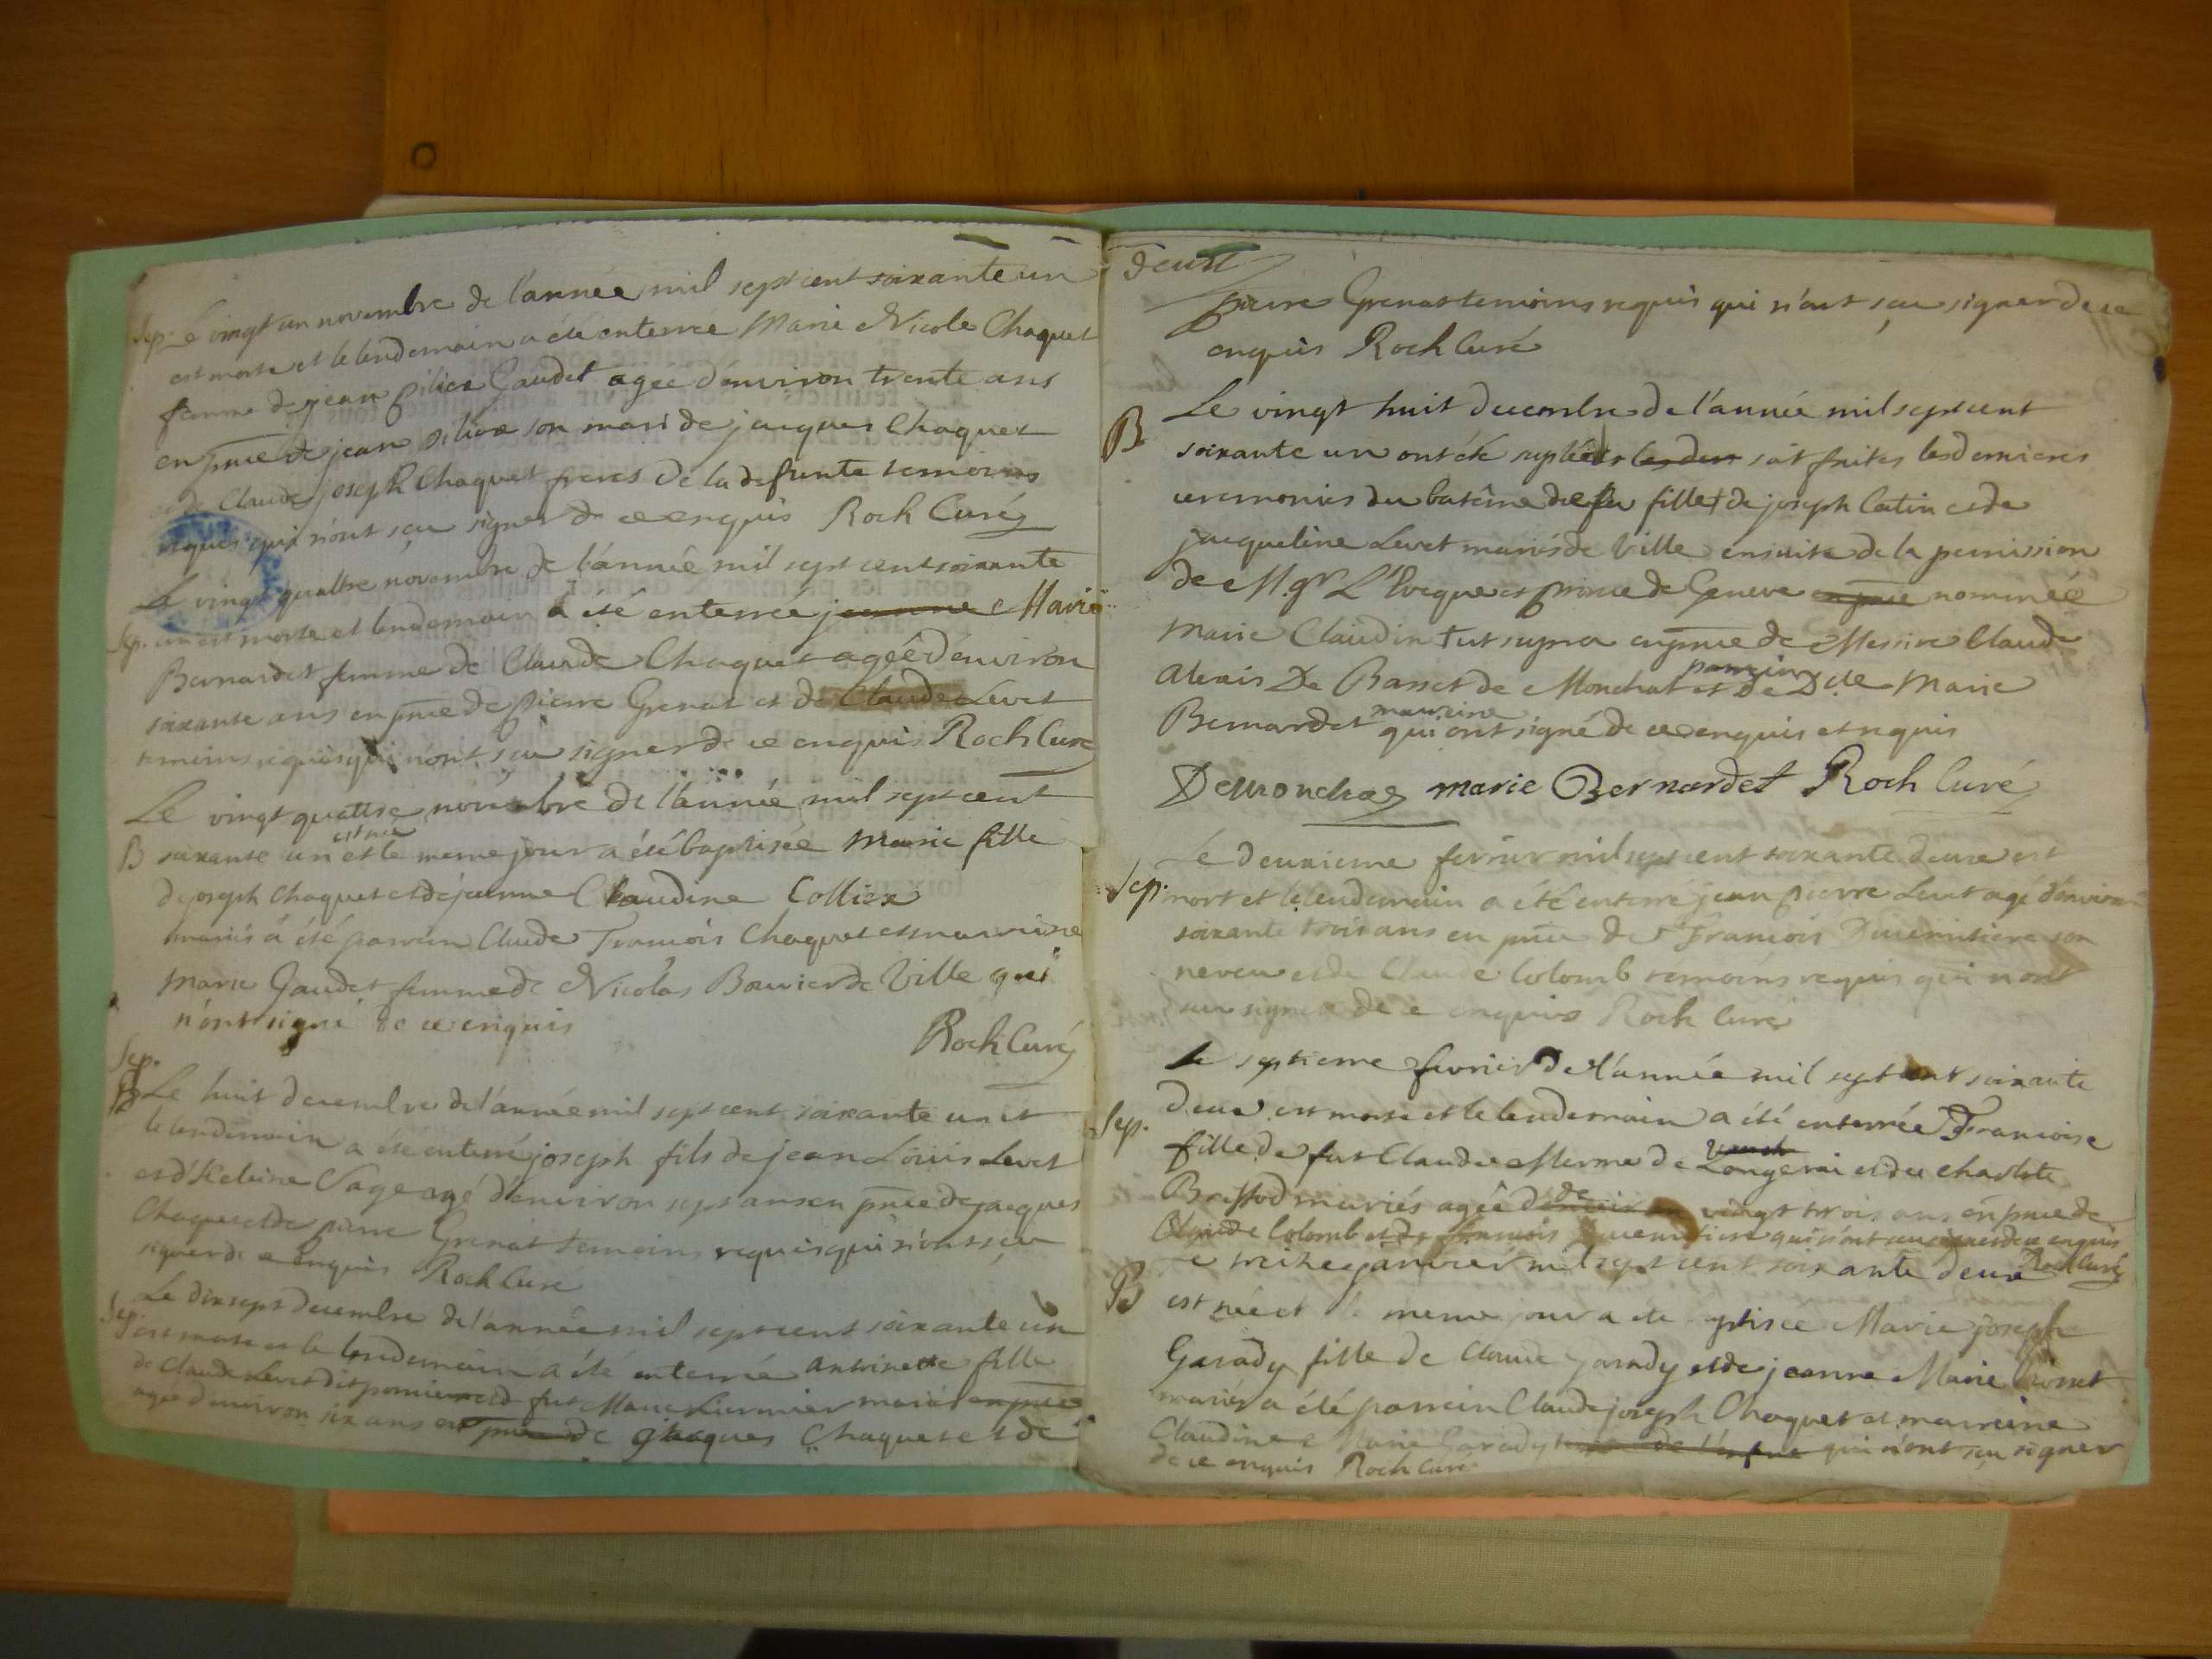 Sep. Le vingt un novembre de l'année mil sept cent soixante un
est morte et le lendemain a été enterrée Marie Nicole Chaquet
femme de jean Gaudet agée d'environ trente ans
en pnce de jean son mari de jacques Chaquet
et de Claude joseph Chaquet freres de la defunte temoins
requis qui n'ont sçu signer de ce enquis Roch Curé
Le vingt quattre novembre de l'année mil sept cent soixante
Sep. un est morte et lendemain a été enterrée jeanne Marie
Bernardet femme de Claude Chaquet agée d'environ
soixante ans en pnce de pierre Grenat et de Claude Levet
temoins requis qui n'ont sçu signer de ce enquis Roch Curé
Le vingt quattre novembre de l'année mil sept cent
est née
B soixante un et le meme jour a été baptisée Marie fille
de joseph Chaquet et de jeanne Claudine Collier
mariés a été parrain Claude Francois Chaquet et marreine
Marie Gaudet femme de Nicolas Bouvier de Ville qui
n'ont signé de ce enquis
Roch Curé
Sep.
B Le huit decembre de l'année mil sept cent soixante un et
le lendemain a été enterré joseph fils de jean Louis Levet
et d' Sage agé d'environ sept ans en pnce de jacques
Chaquet et de pierre Grenat temoins requis qui n'ont sçu
signer de ce enquis Roch Curé
Le dix sept decembre de l'année mil sept cent soixante un
Sep. est morte et le lendemain a été enterrée antoinette fille
de Claude Levet dit et de fut Marie mariés en pnce
agée d'environ six ans en pnce de jacques Chaquet et de
deux
pierre Grenat temoins requis qui n'ont sçu signer de ce
enquis Roch Curé
Le vingt huit decembre de l'année mil sept cent
B soixante un ont été suplées les der soit faites les dernieres
ceremonies du batême de fille + de joseph Catin et de
jacqueline Levet mariés de Ville ensuite de la permission
de M.gr L'Eveque et prince de Geneve en pnce nommée
Marie Claudin + ut supra en pnce de Messire Claude
parrain
alexis De Basset de Monchat et de Dlle Marie
marreine
Bernardet qui ont signé de ce enquis et requis
Demonchas marie Bernardet Roch Curé
Le deuxieme fevrier mil sept cent soixante deux est
Sep. mort et le lendemain a été enterré jean pierre Levet agé d'environ
soixante trois ans en pnce de Francois son
neveu et de Claude Colomb temoins requis qui n'ont
sçu signer de ce enquis Roch Curé
Le septieme fevrier de l'année mil sept cent soixante
Sep. deux est morte et le lendemain a été enterrée Francoise
fille de fut Claude Merme de Longerai et de Charlote
de
mariés agée d'environ vingt trois ans en pnce de
Claude Colomb et de francois qui n'ont sçu signer de ce enquis
Roch Curé
e treize janvier mil sept cent soixante deux
B est née et le meme jour a été ptisée Marie joseph
Garady fille de Claude Garady et de jeanne Marie
mariés a été parrain Claude joseph Chaquet et marreine
Claudine Marie Garady qui n'ont sçu signer
de ce enquis Roch Curé